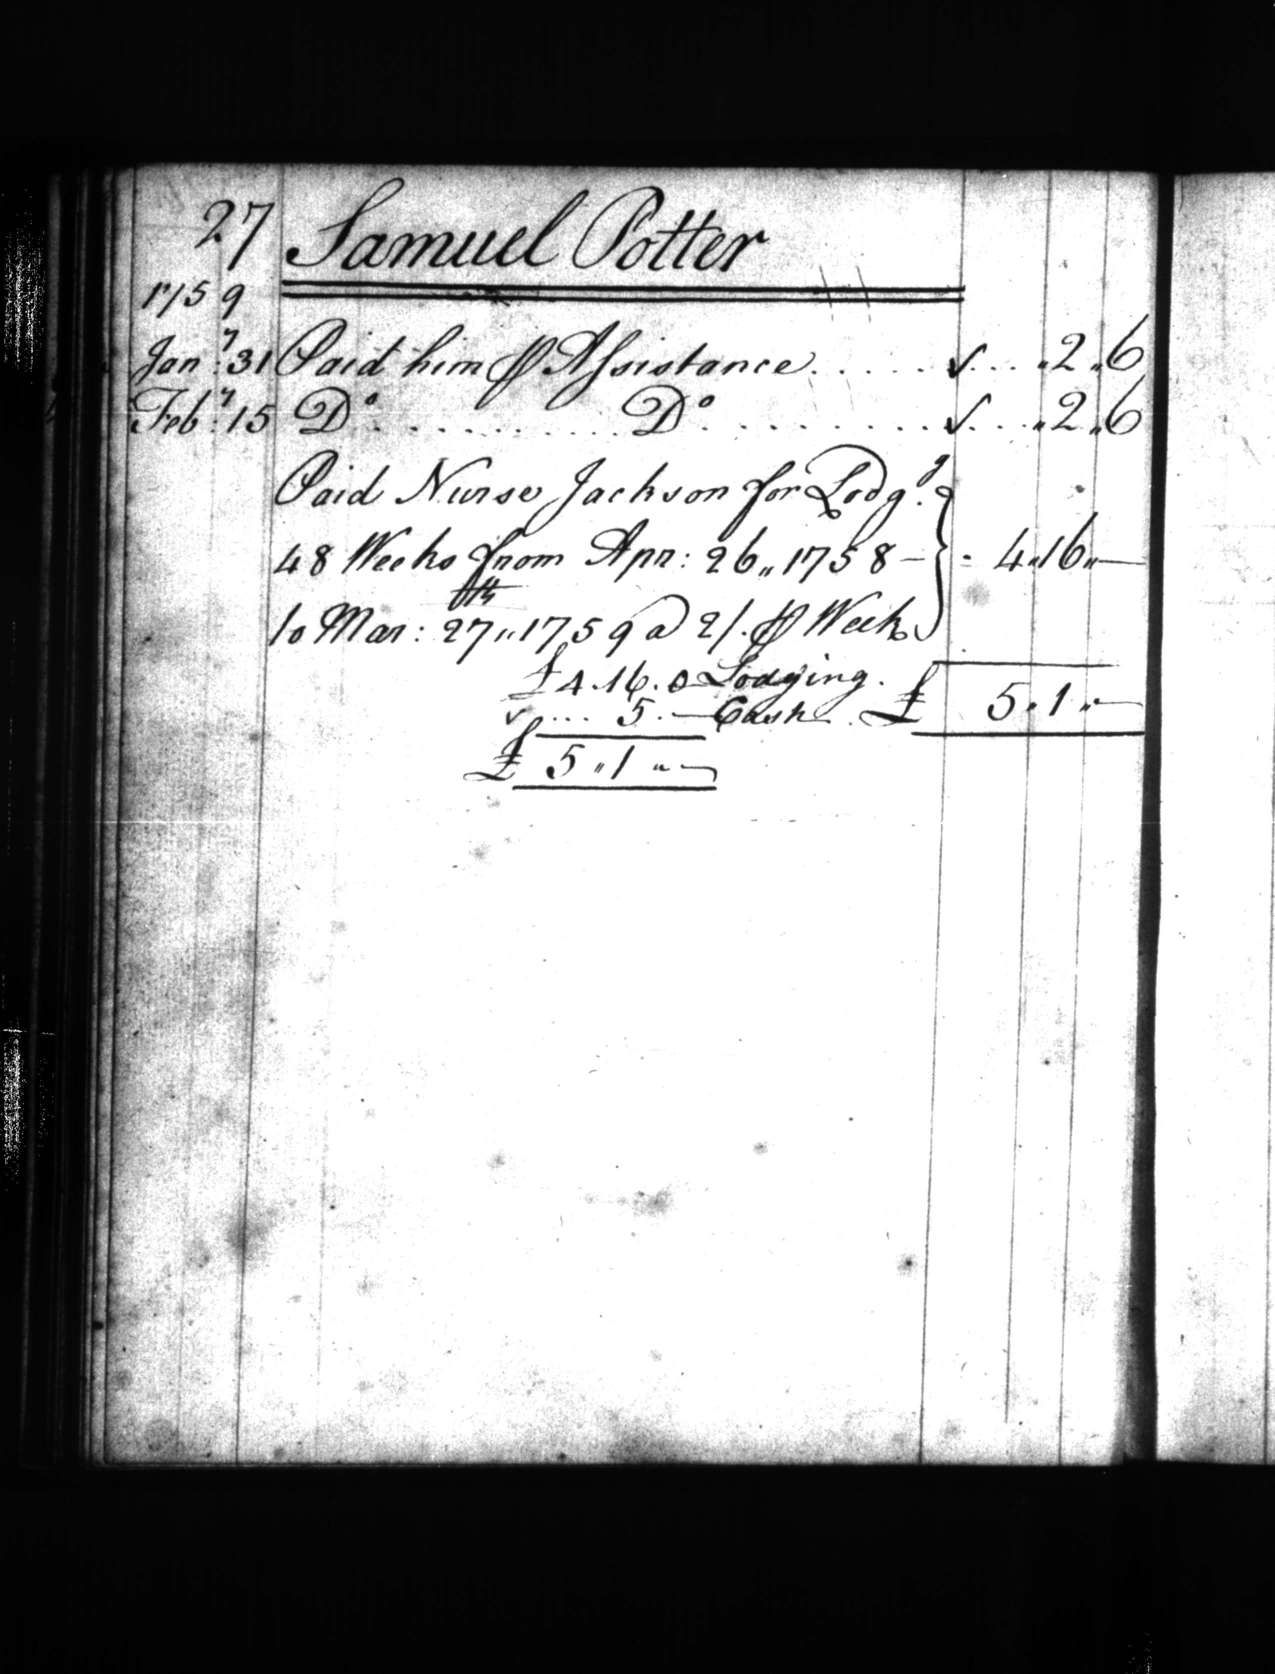 27 Samuel Potter
1759
Janʸ: 31 Paid him ⅌ Assistance . . . . . ✓ . . . „ 2 „ 6
Febʸ: 15 Dº . . . . . . . . . . Dº . . . . . . . . . ✓ . . . „ 2 „ 6
Paid Nurse Jackson for Lodgᵍ:
48 Weeks from Apr: 26„ 1758 – } - 4„16„—
to Mar: 27ᵗʰ„ 1759 @ 2/. ⅌ Week
£4.16.0 Lodging.
✓ ... 5.— Cash . £ 5„1„—
£ 5„1„—